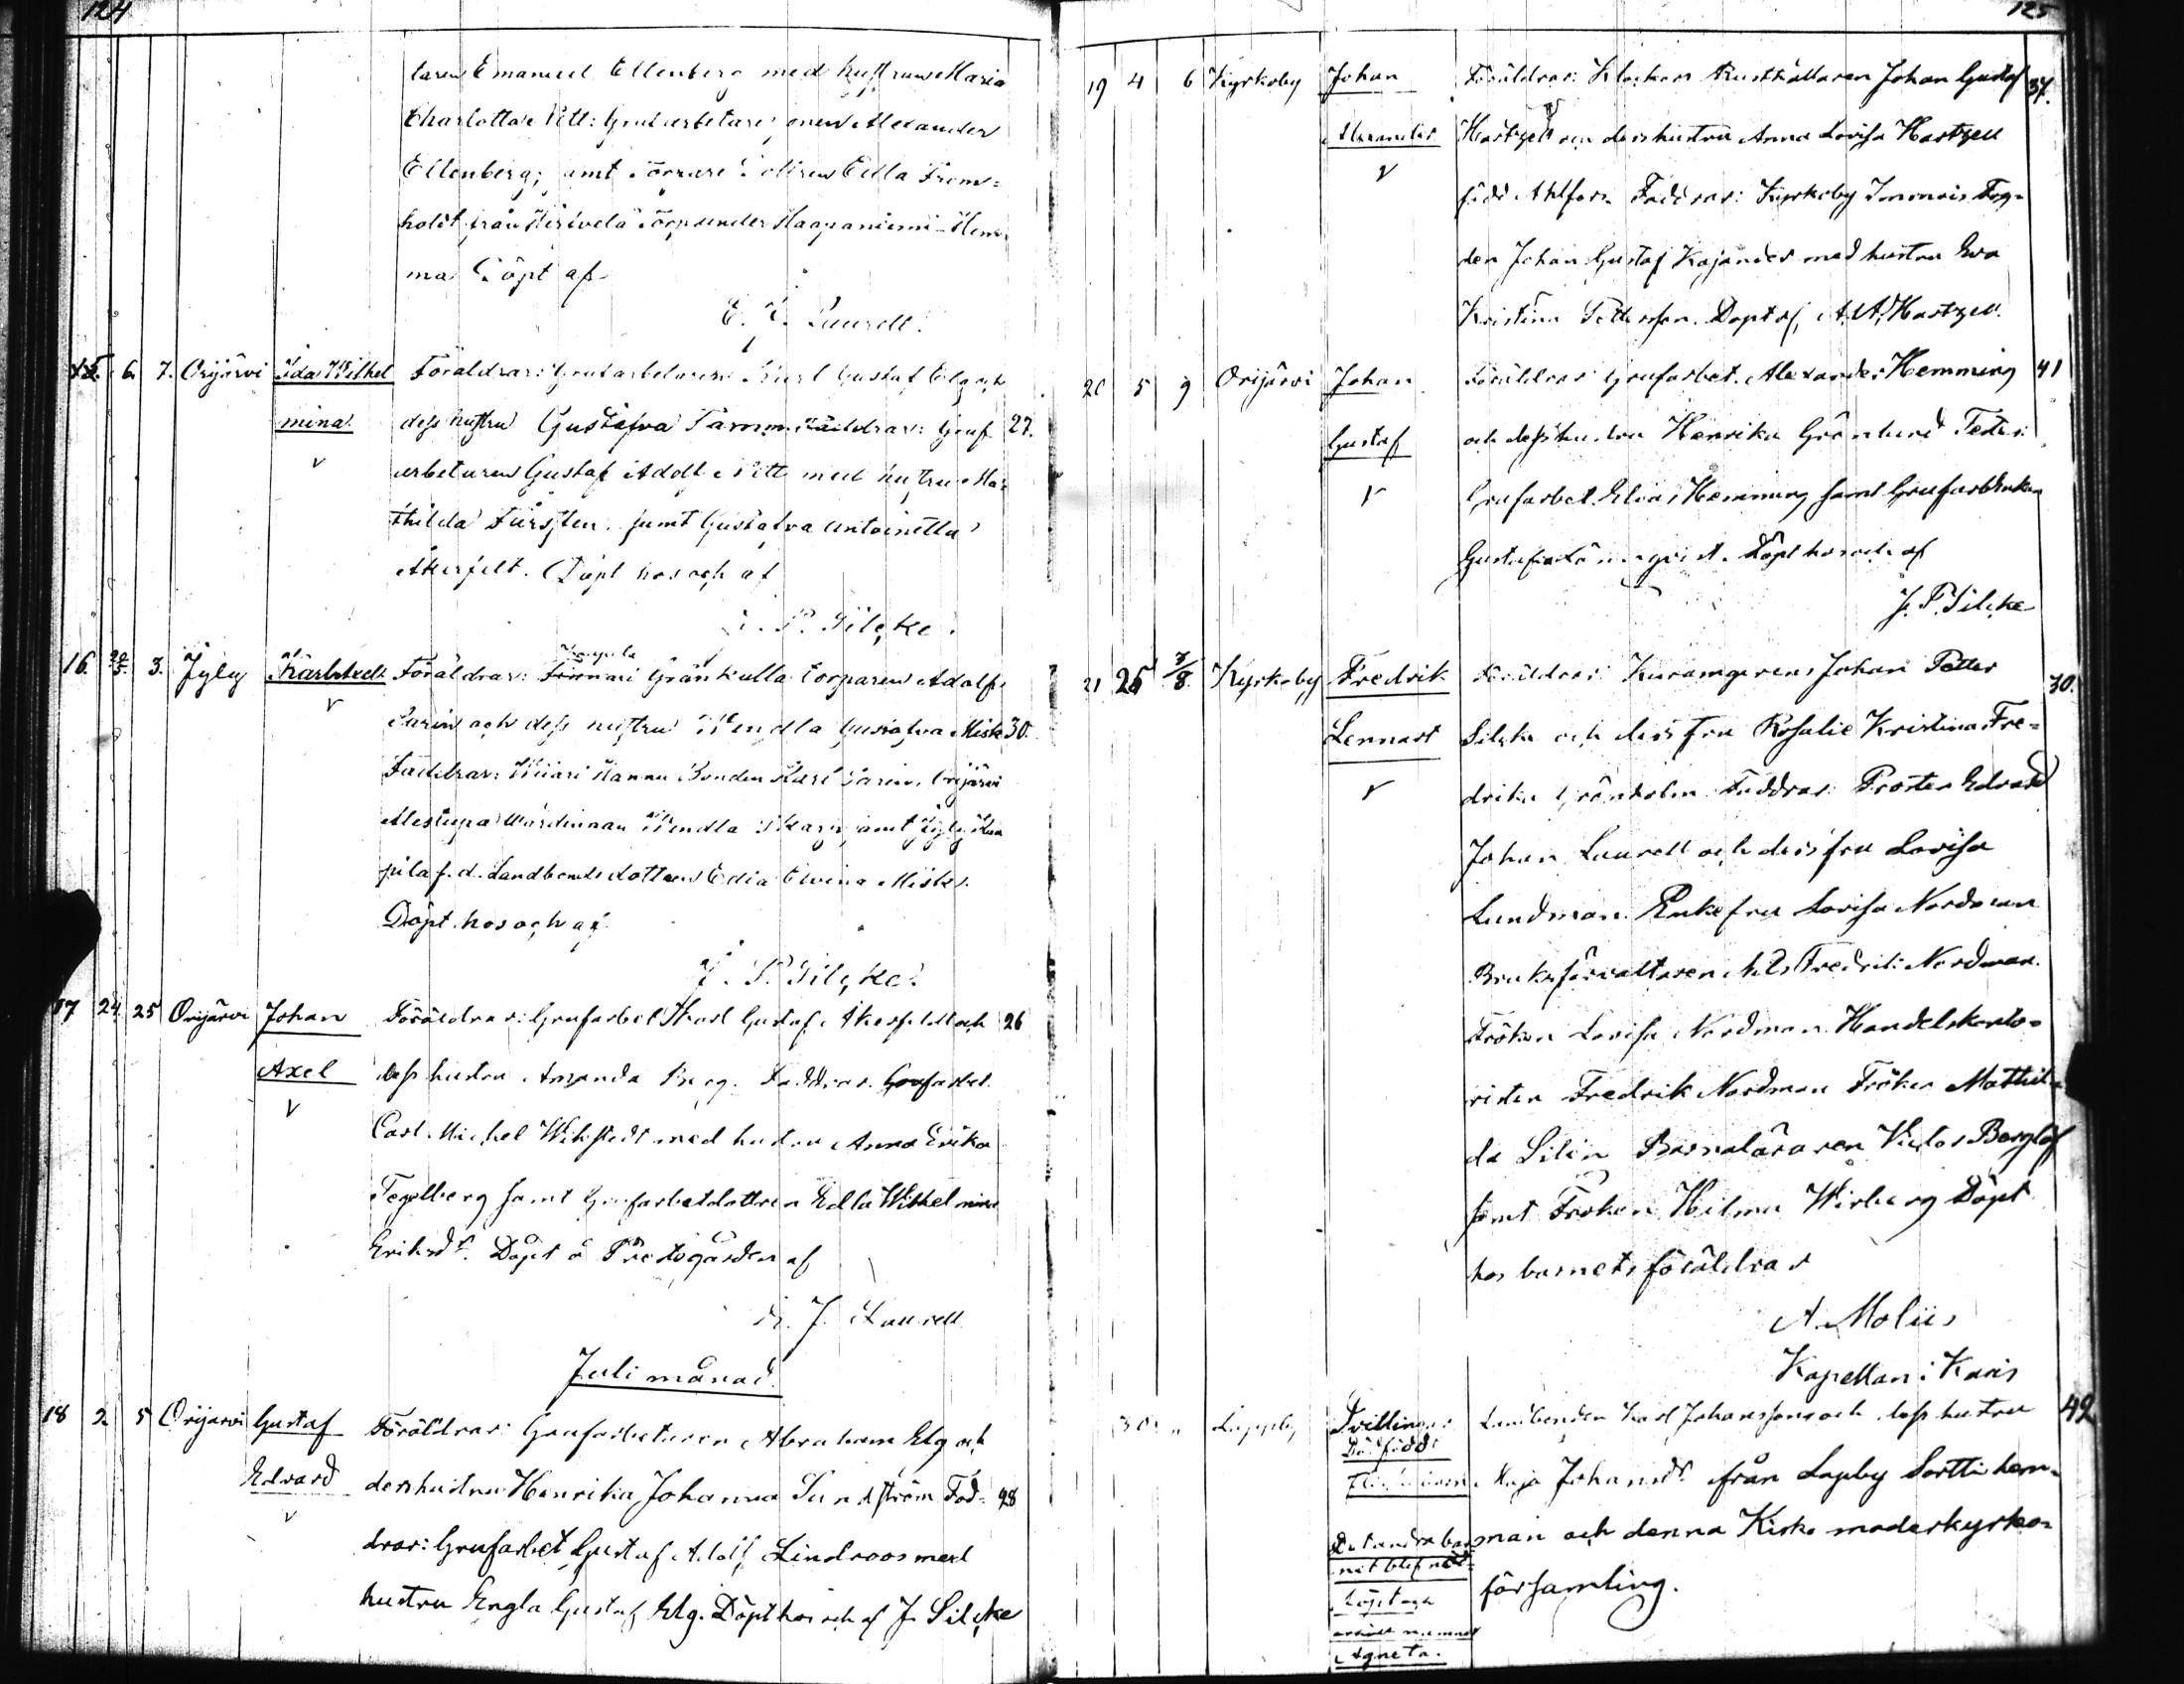 124
taren Emanuel Ellenberg med hustrun Maria
Charlotta Nitt: Grufarbetare Alexander
Ellenberg; samt Edla Frem=
holdt från torp under Haapaniemi Hem=
ma Döpt af
E. J. Laurell.
15. 6. 7. Orijärvi Ida Wilhel Föräldrar: Grufarbetaren Karl Gustaf Elg och
mina dess hustru Gustafva Tamm. Faddrar: Gruf 27.
arbetaren Gustaf Adolf Nitt med hustru Ma=
thilda Fursten samt Gustafva Antoinetta
Åkerfelt. Döpt hos och af
J. P. Silcke.
16. 3. Jyly Karl Axel Föräldrar: Gränkulla torparen Adolf
Sarin och dess hustru Wendla Gustafva Misk 30.
Faddrar: Hannu Bonden Karl Sarin, Orijärvi
Mestupa Wendla samt Jyly
pila f. d. Landbonde dottern Edla Elvina Misk
Döpt hos och af
J. P. Silcke.
17 24 25 Orijärvi Johan Föräldrar: Grufarbet Karl Gustaf Åkerfeldt och 26
Axel dess hustru Amanda Berg. Faddrar. Grufarbet.
Carl Michel Wikstedt med hustru Anna Erika
Tegelberg samt Grufarbetdottren Edla Wilhelmina
Eriksdr. Döpt å Prestgården af
E. J. Laurell
Juli månad.
18 2 5 Orijärvi Gustaf Föräldrar: Grufarbetaren Abraham Elg och
Edvard dess hustru Henrika Johanna Sundström Fad= 28
drar: Grufarbet Gustaf Adolf Lindroos med
hustru Engla Gustaf Elg. Döpt hos och af J. Silcke
125
19 4 6 Kyrkoby Johan Föräldrar: Klockaren Rusthållaren Johan Gustaf 37.
Alexander Hartzell och dess hustru Anna Lovisa Hartzell
född Ahlfors Faddrar: Kyrkoby Immois Fog=
den Johan Gustaf Kajander med hustru Eva
Kristina Pettersson. Döpt af A. A. Hartzell.
20 5 9 Orijärvi Johan Föräldrar Grufarbet. Alexander Hemming 41
Gustaf och dess hustru Henrika Grönlund
Grufarbet. Elias Hemming samt Grufarbenkan
Gustafva Döpt hos och af
J. P. Silcke
21 25 7/8. Kyrkoby Fredrik Föräldrar: Johan Petter 30.
Lennart Silcke och dess fru Rosalie Kristina Fre=
drika Grönholm Faddrar: Prosten Edvard
Johan Laurell och dess fru Lovisa
Lundman. Enkefru Lovisa Nordman
Bruksförvaltaren Nils Fredrik Nordman.
Fröken Lovisa Nordman Handelskonto=
risten Fredrik Nordman Fröken Mathil=
da Silén Barnaläraren Victor Berglöf
samt Fröken Hilma Wirberg Döpt
hos barnets föräldrar
A. Moliis
Kapellan i Karis
30 „ Lappby Tvillingar Landbonden Karl Johansson och dess hustru 42
Dödfödd
Maja Johansdr från Lapby Sortti hem=
Det andra bar man och denna Kisko moderkyrko=
net blef nöd
döpt och församling.
erhöll namnet
Agneta.